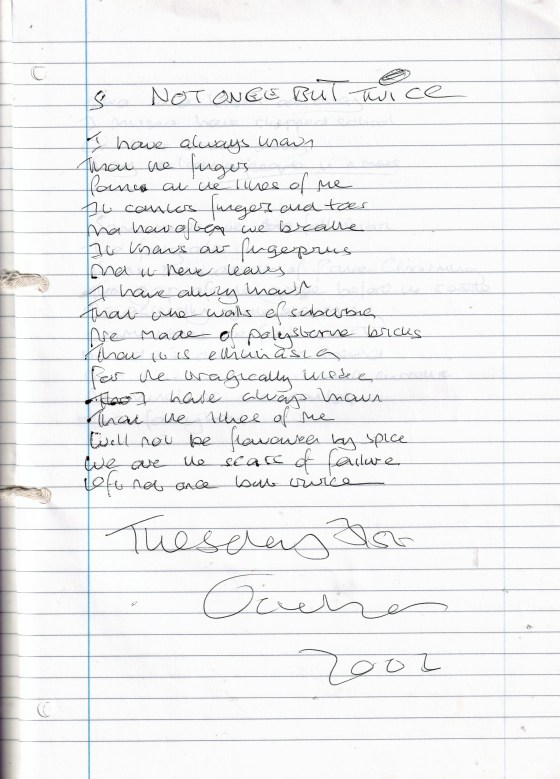 S NOT ONCE BUT TWICE
I have always known
That the fingers
Points at the likes of me
It counts fingers and toes
And how often we breathe
It knows our fingerprints
And it never leaves
I have always known
That the walls of suburbia
Are made of polystyrene bricks
That it is
For the tragically
I have always known
That the likes of me
Will not be flavoured by spice
We are the scars of failure
Left not once but twice
Tuesday
October
2002